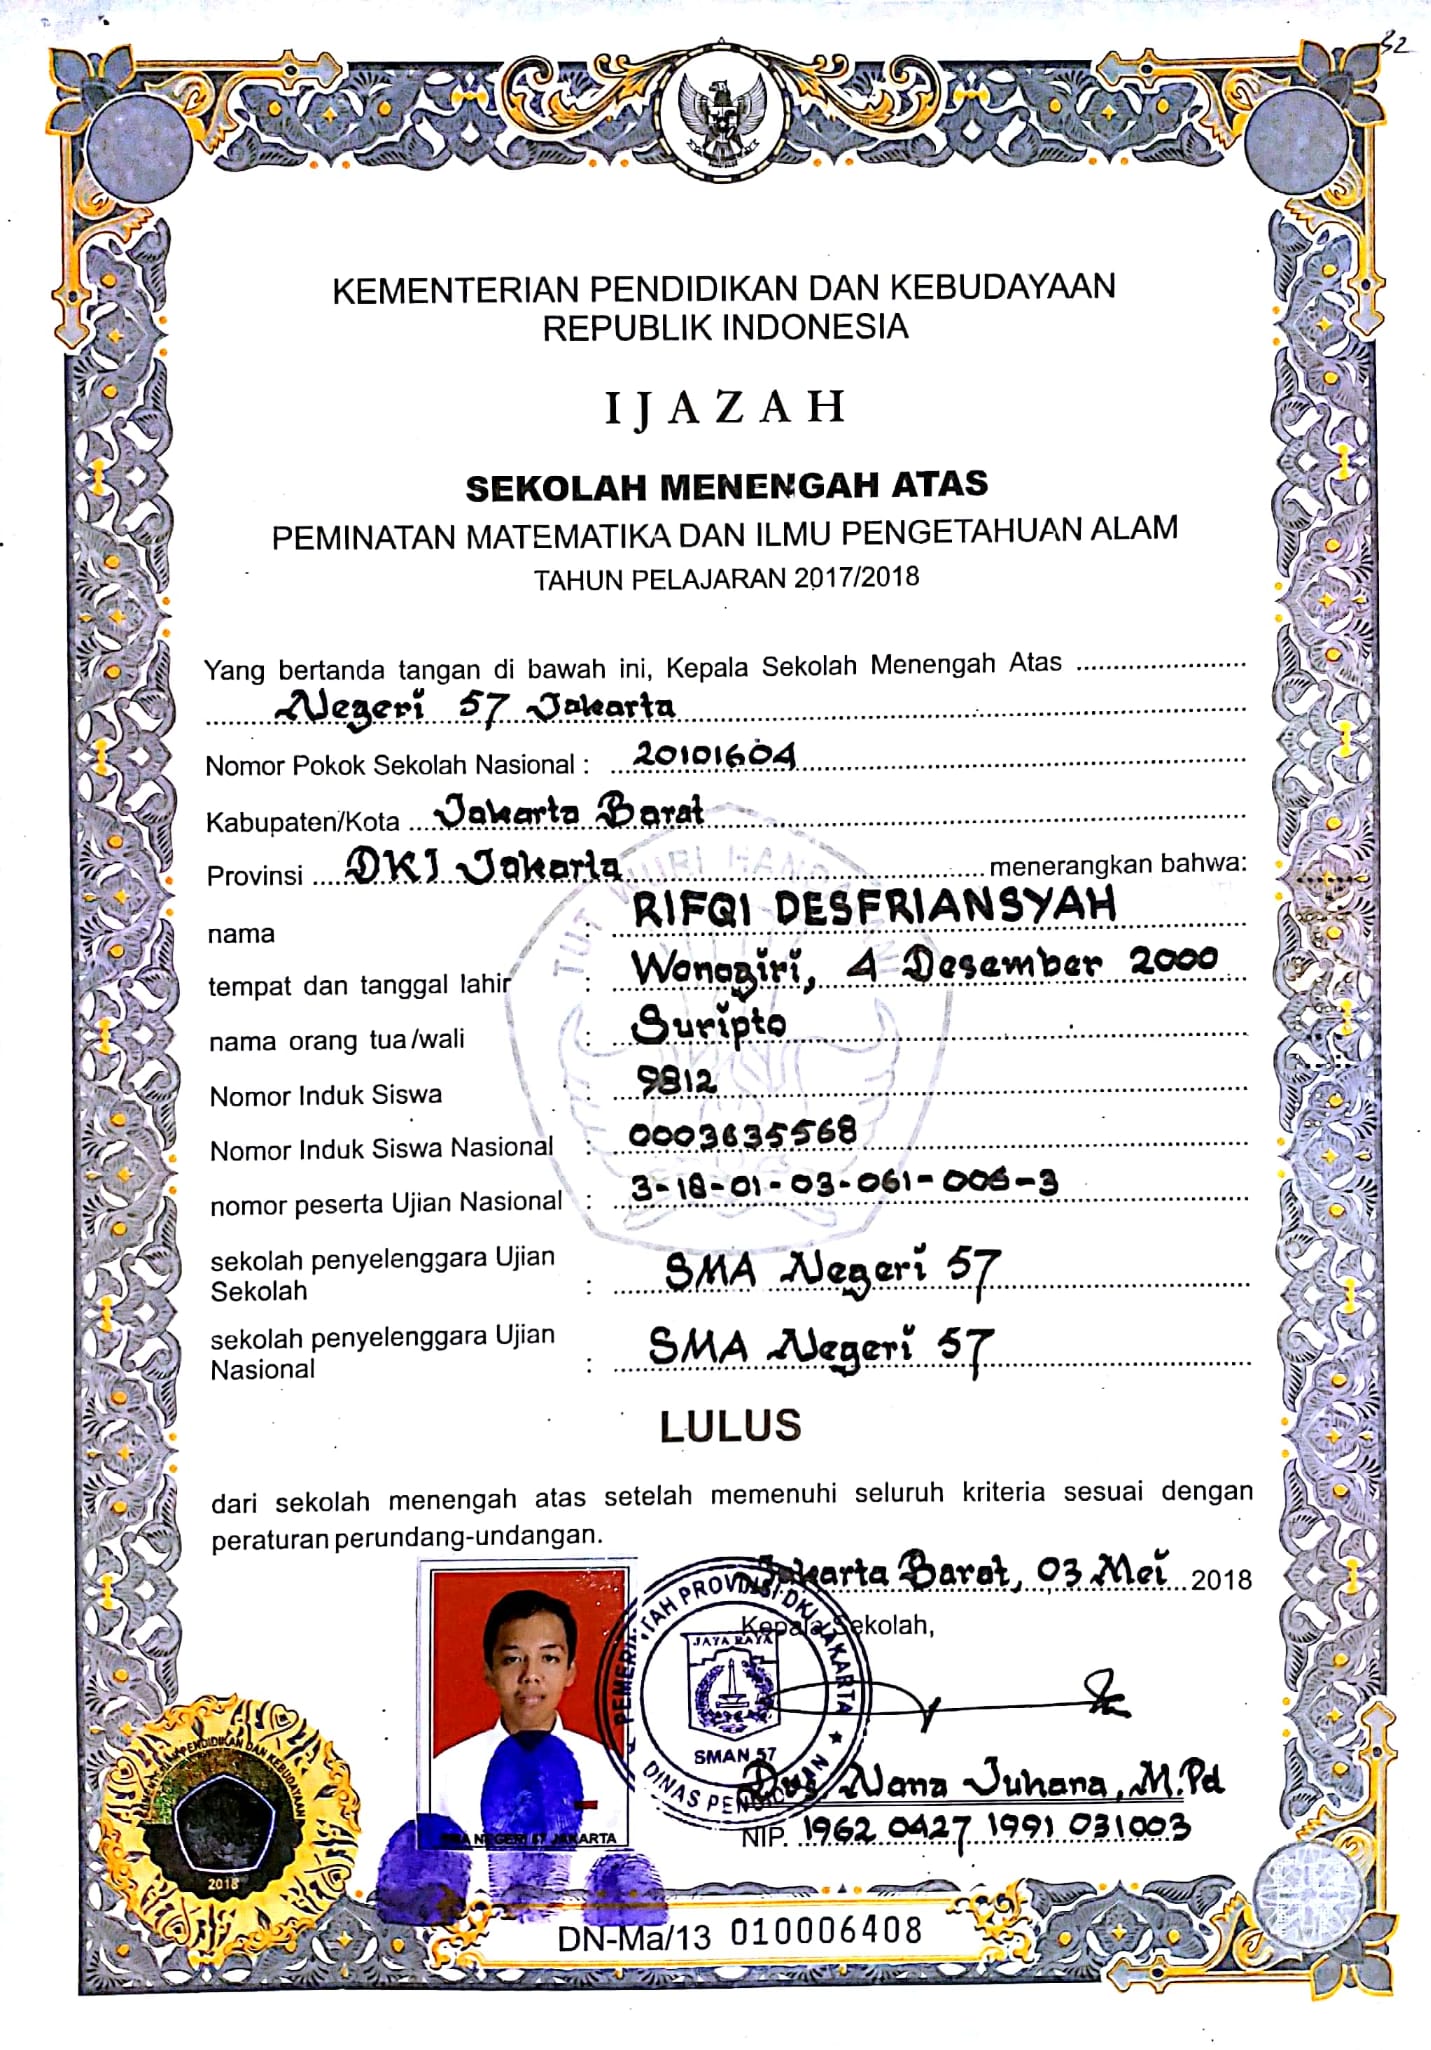 32
KEMENTERIAN PENDIDIKAN DAN KEBUDAYAAN
REPUBLIK INDONESIA
IJAZAH
SEKOLAH MENENGAH ATAS
PEMINATAN MATEMATIKA DAN ILMU PENGETAHUAN ALAM
TAHUN PELAJARAN 2017/2018
Yang bertanda tangan di bawah ini, Kepala Sekolah Menengah Atas
Negeri 57 Jakarta
Nomor Pokok Sekolah Nasional : 20101604
Kabupaten/Kota Jakarta Barat
Provinsi DKI Jakarta menerangkan bahwa:
nama : RIFQI DESFRIANSYAH
tempat dan tanggal lahir : Wonogiri, 4 Desember 2000
nama orang tua/wali : Suripto
Nomor Induk Siswa : 9812
Nomor Induk Siswa Nasional : 0003635568
nomor peserta Ujian Nasional : 3-18-01-03-061-006-3
sekolah penyelenggara Ujian
Sekolah : SMA Negeri 57
sekolah penyelenggara Ujian
Nasional : SMA Negeri 57
LULUS
dari sekolah menengah atas setelah memenuhi seluruh kriteria sesuai dengan
peraturan perundang-undangan.
Jakarta Barat, 03 Mei 2018
Kepala Sekolah,
PEMERINTAH PROVINSI DKI JAKARTA
JAYA RAYA
SMAN 57
DINAS PENDIDIKAN
Drs Nana Juhana, M.Pd
NIP. 1962 0427 1991 031003
SMA NEGERI 57 JAKARTA
PENDIDIKAN DAN KEBUDAYAAN
2018
DN-Ma/13 010006408